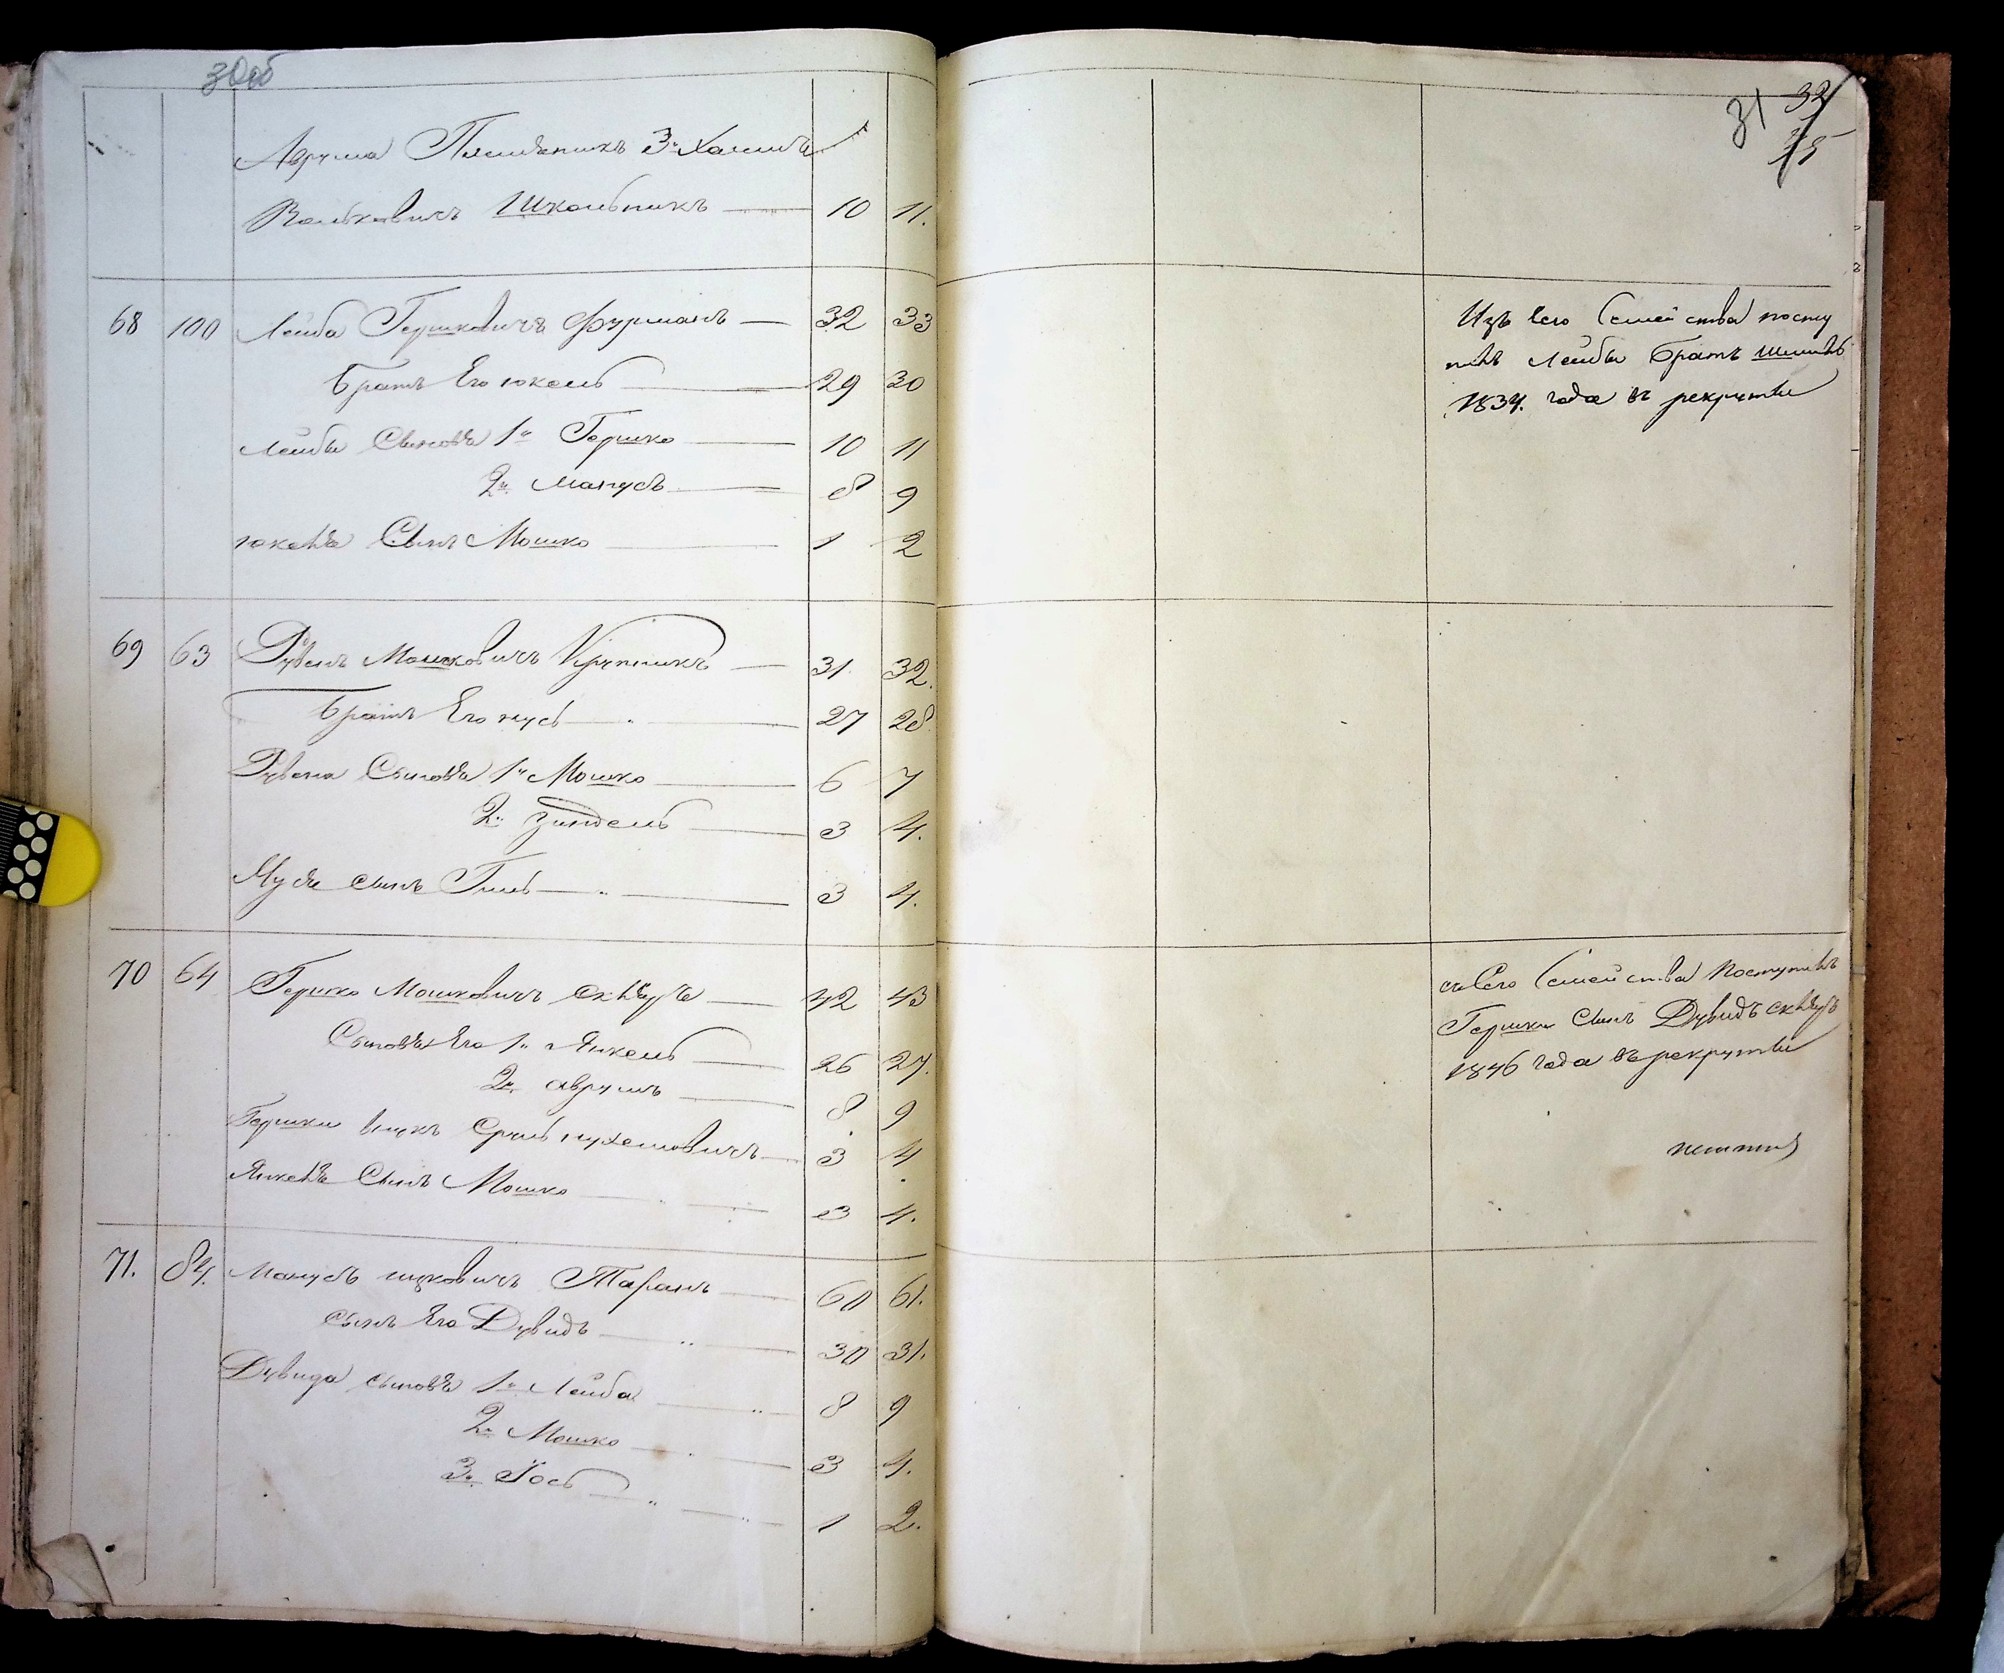 30об
Аврума Племеникъ 3й Хаимъ
Волковичъ Школьникъ 10 11.
68 100 Лейба Гершковичъ Фурманъ 32 33
Братъ Его Юкель 29 30
Лейбы Сыновя 1й Гершко 10 11
2й Манусъ 8 9
Юкеля Сынъ Мошко 1 2
69 63 Рувенъ Мошковичъ Крупникъ 31. 32.
Братъ Его Мусь 27 28.
Рувена Сыновя 1й Мошко 6 7
2й Зиндель 3 4.
Муся сынъ Гиль 3 4.
70 64 Гершко Мошковичъ 42 43
Сыновя Его 1й Янкель 26 27.
2й Аврумъ 8 9
Гершки внукъ Сруль Нухемовичъ 3 4.
Янкеля Сынъ Мошко 3 4.
71. 84. Манусъ Ицковичъ Таранъ 60 61.
сынъ Его Дувидъ 30 31.
Дувида сыновя 1й Лейба 8 9
2й Мошко 3 4.
3й Іось 1 2.
31 32
Изъ Сего Семейства посту
пилъ Лейбы Братъ
1834. года въ рекруты
съ Сего Семейства Поступилъ
Гершки Сынъ Дувидъ
1846 года въ рекруты